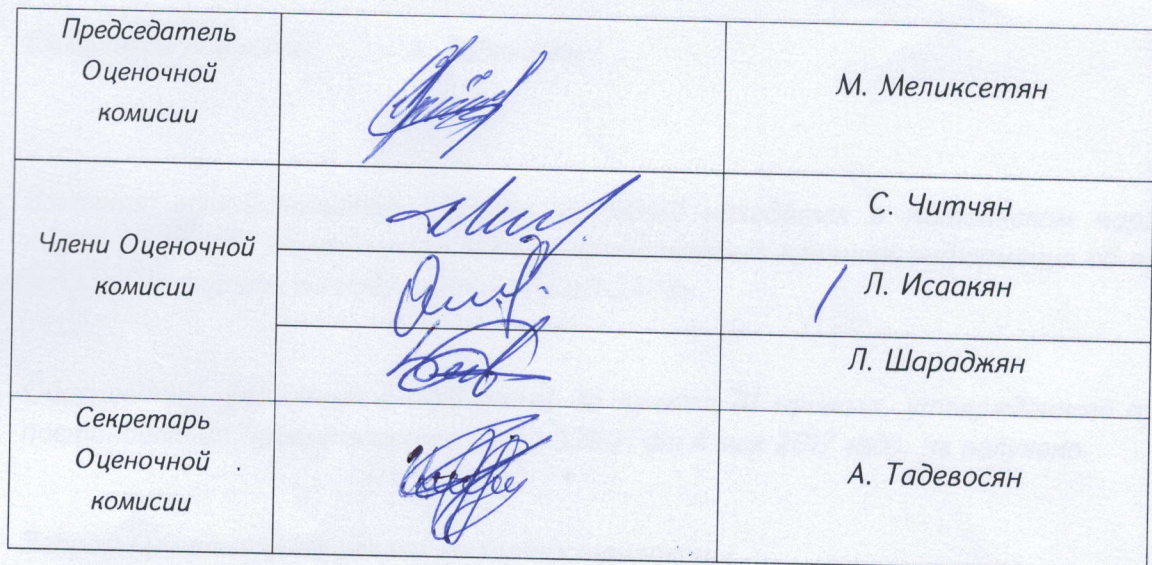 Председатель
Оценочной
комисии
М. Меликсетян
Члени Оценочной
комисии
С. Читчян
Л. Исаакян
Л. Шараджян
Секретарь
Оценочной
комисии
А. Тадевосян